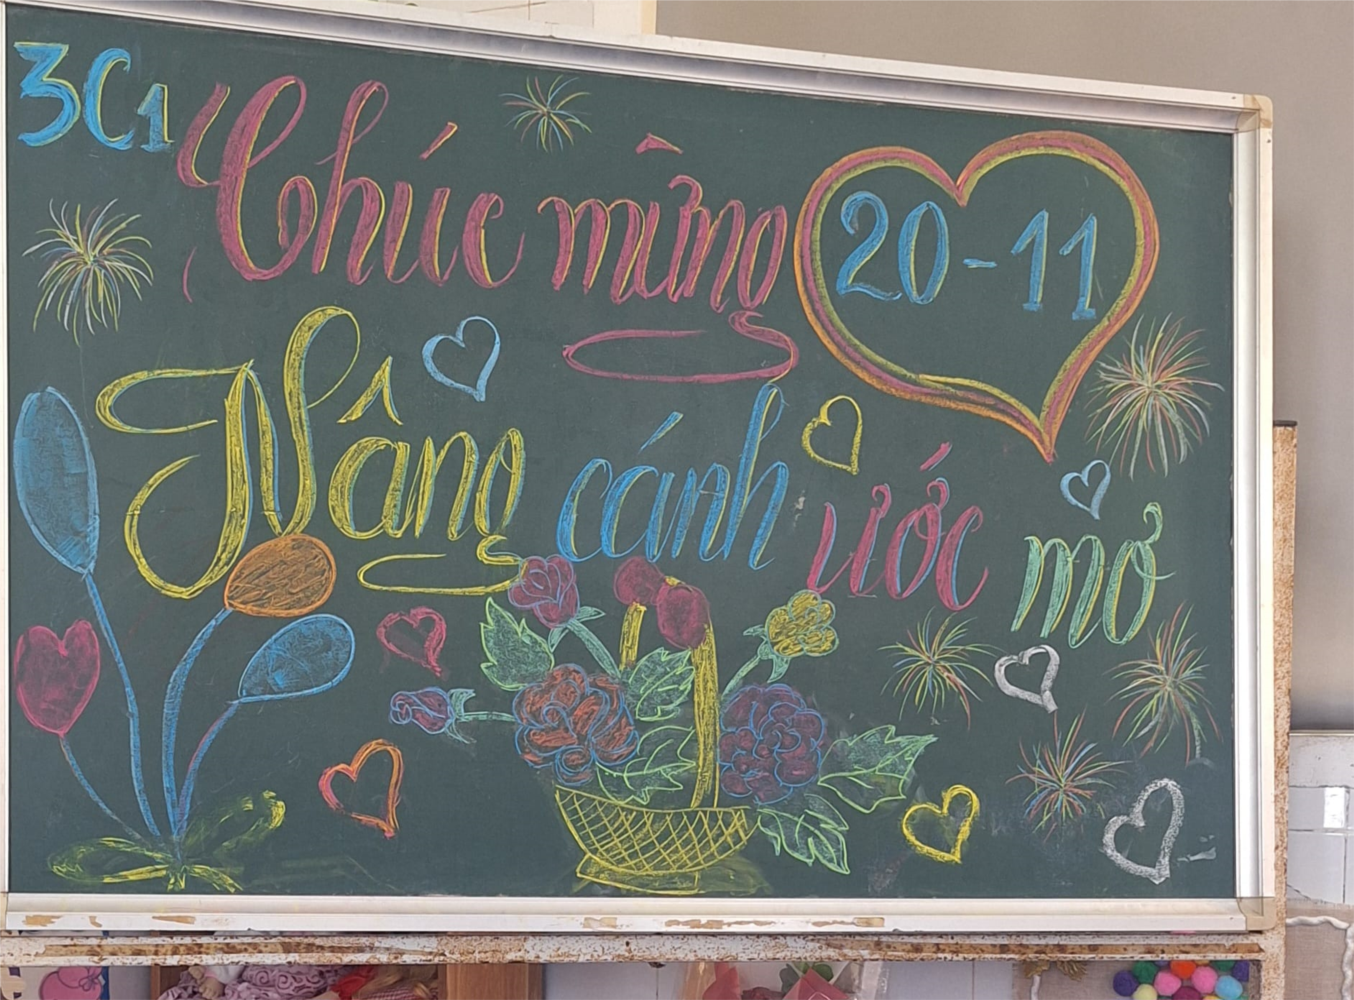 3C1
Chúc mừng 20-11
Nâng cánh ước mơ